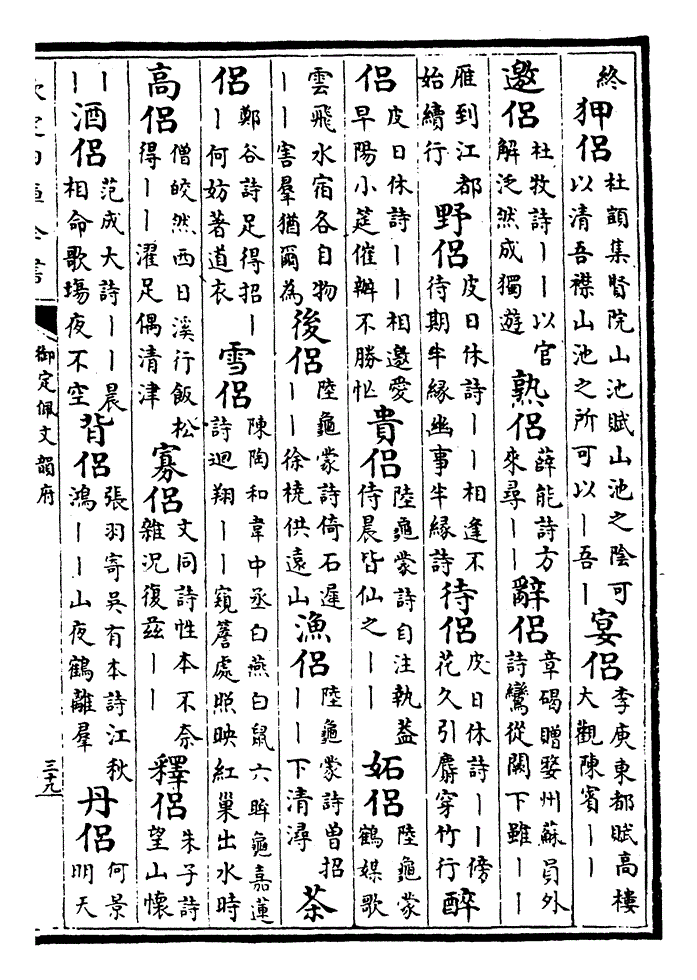 終狎侶杜顗集賢院山池賦山池之陰可以清吾襟山池之所可以丨吾丨宴侶李庾東都賦高樓大觀陳賓丨丨
邀侶杜牧詩丨丨以官解泛然成獨遊熟侶薛能詩方來尋丨丨辭侶章碣贈婺州蘇員外詩鸞從闕下雖丨丨
雁到江都始續行野侶皮日休詩丨丨相逢不待期半緣幽事半緣詩待侶皮日休詩丨丨傍花久引麝穿竹行醉
侶皮日休詩丨丨相邀愛早陽小筵催辦不勝忙貴侶陸龜蒙詩自注執葢侍晨皆仙之丨丨妬侶陸龜蒙鶴媒歌
雲飛水宿各自物丨丨害羣猶爾為後侶陸龜蒙詩倚石遲丨丨徐橈供遠山漁侶陸龜蒙詩曽招丨丨下清潯茶
侶鄭谷詩足得招丨丨何妨著道衣雪侶陳陶和韋中丞白燕白鼠六眸龜嘉蓮詩迴翔丨丨窺簷處照映紅巢出水時
高侶僧皎然西日溪行飯松得丨丨濯足偶清津寡侶文同詩性本不奈雜況復茲丨丨釋侶朱子詩望山懷
丨丨酒侶范成大詩丨丨晨相命歌塲夜不空背侶張羽寄吳有本詩江秋鴻丨丨山夜鶴離羣丹侶何景明天
欽定四庫全書
御定佩文韻府
三十九